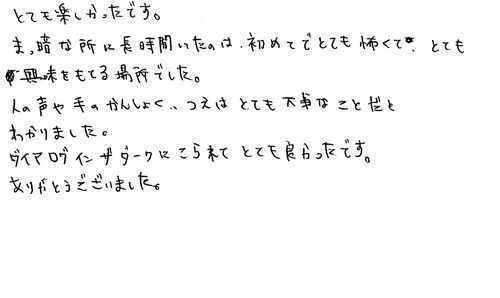 とても楽しかったです。
まっ暗な所に長時間いたのは、初めてでとても怖くて、とても
興味をもてる場所でした。
人の声や手のかんしょく、つえはとても大事なことだと
わかりました。
ダイアログインザダークにこられてとても良かったです。
ありがとうございました。